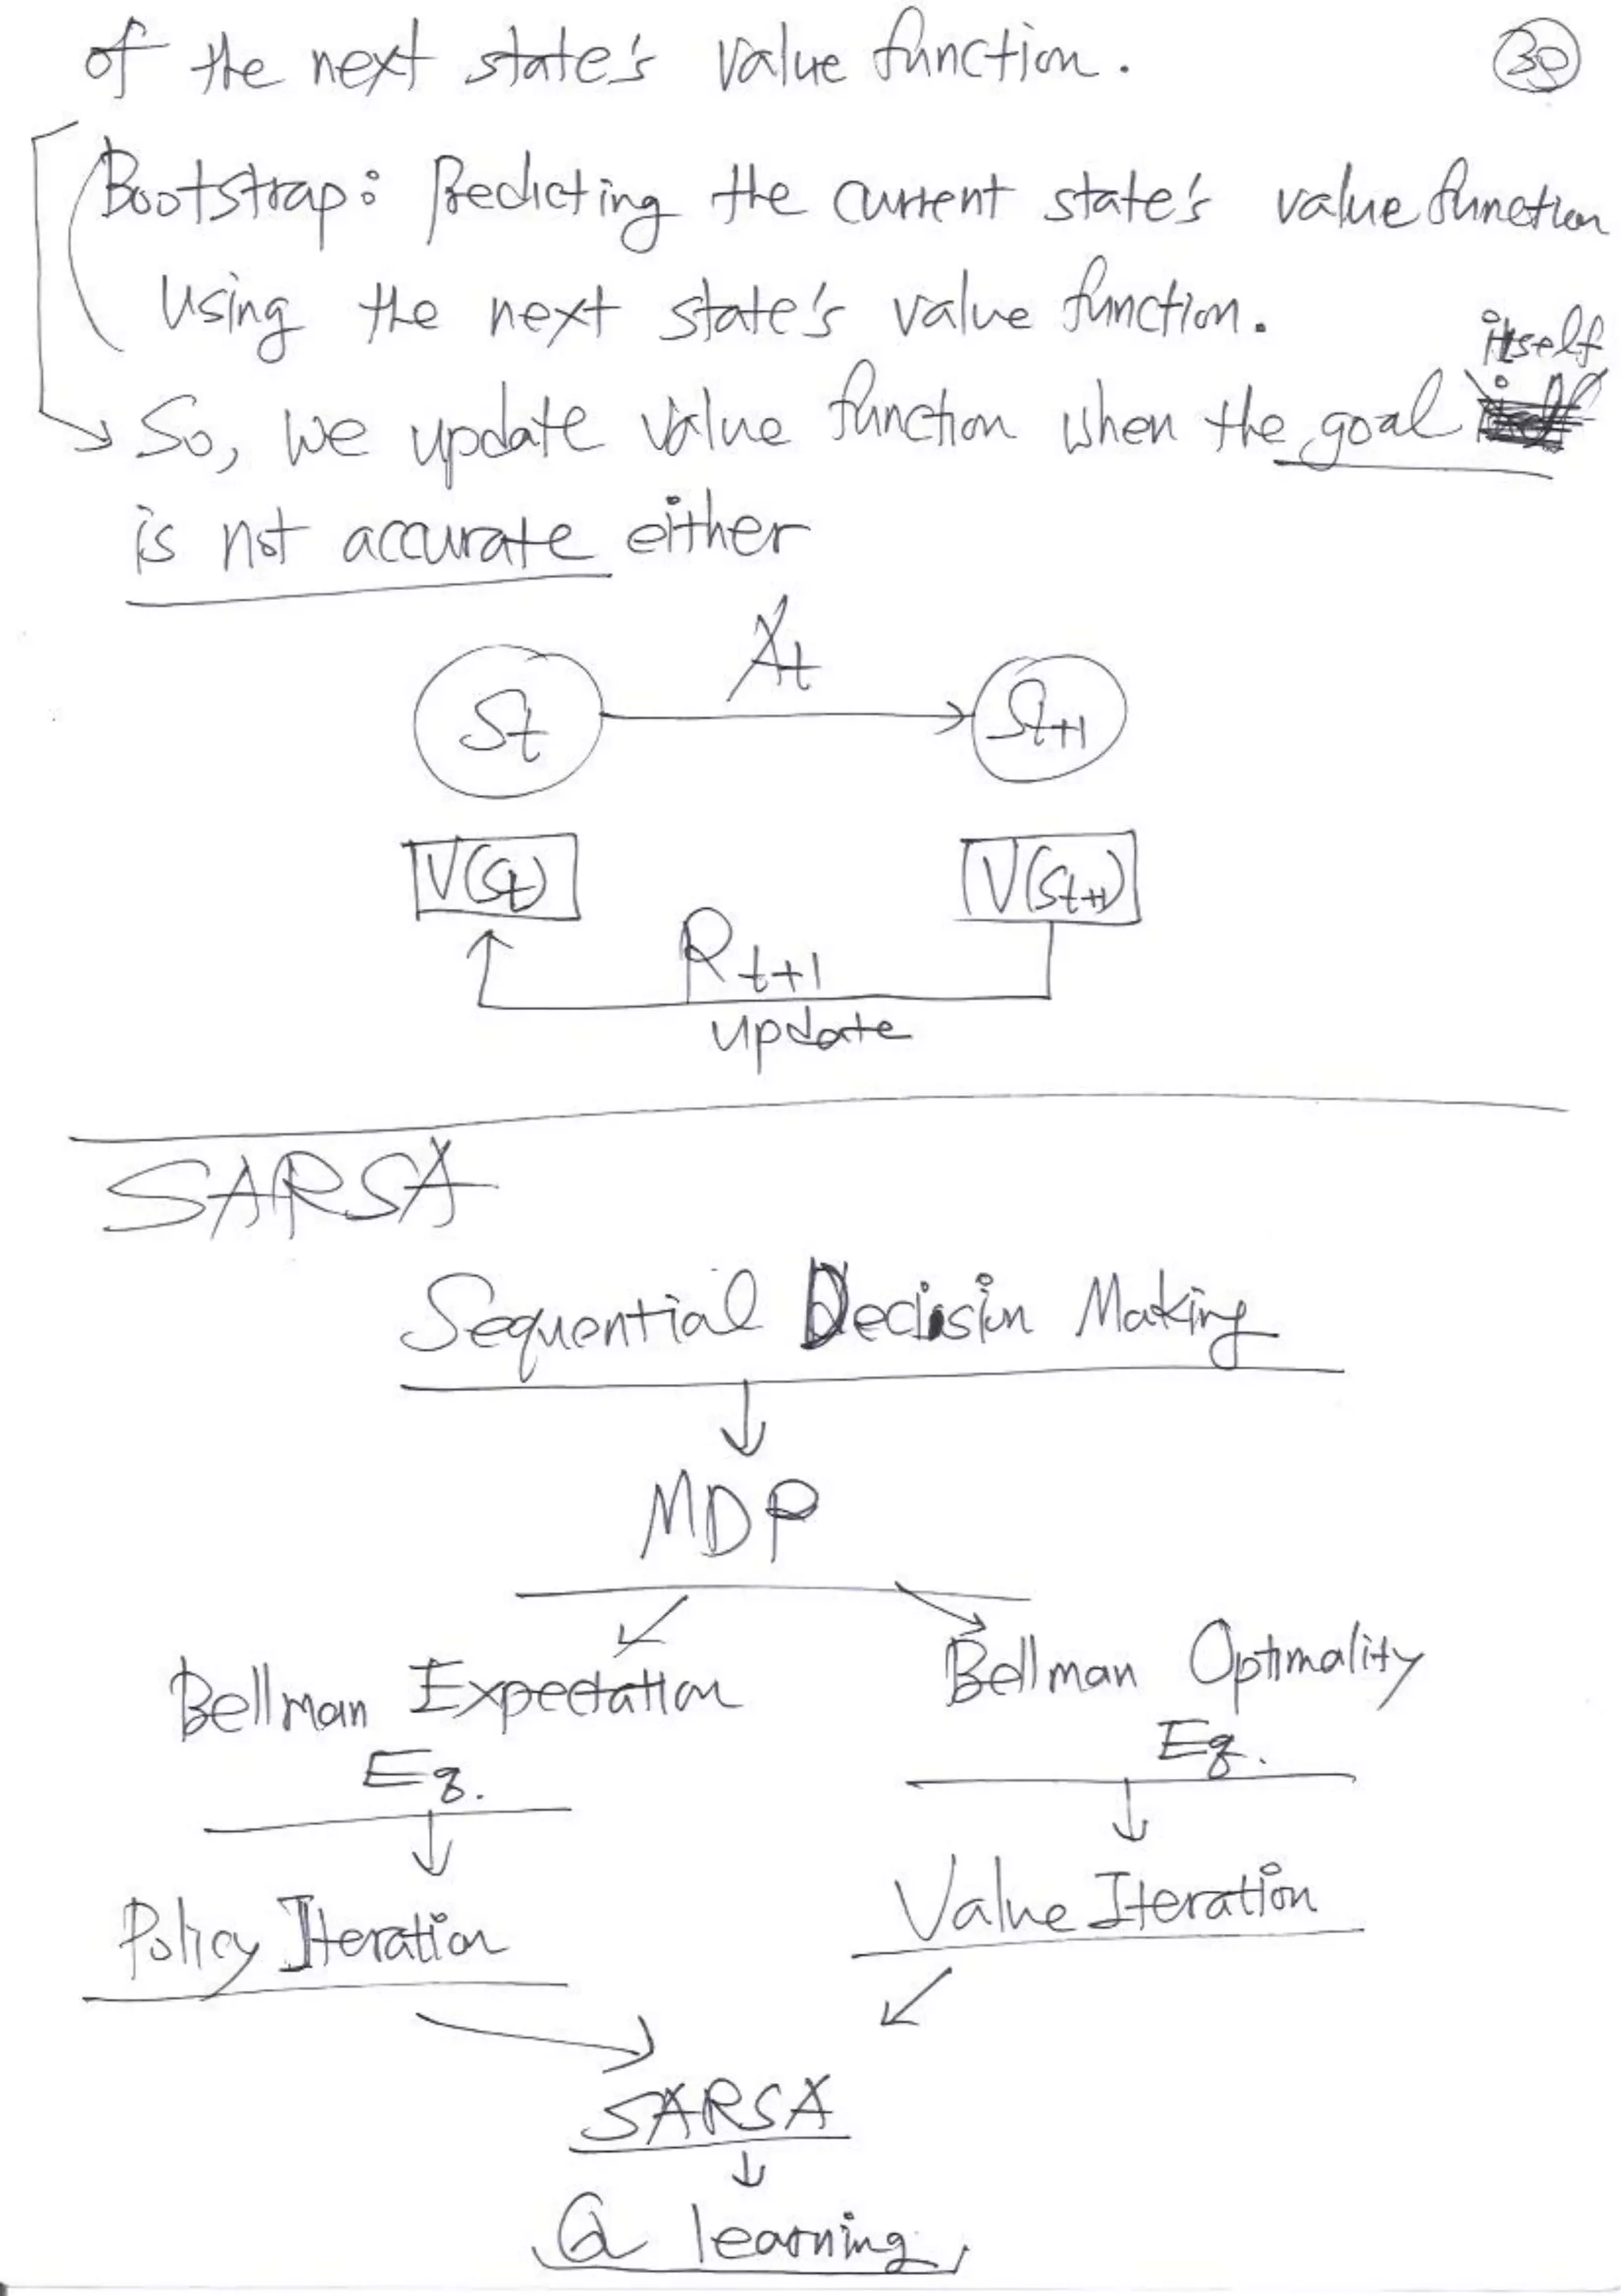 of the next state's value function.
Bootstrap: Predicting the current state's value function
using the next state's value function.
itself
So, we update value function when the goal
is not accurate either
At
St
St+1
V(St)
V(St+1)
Rt+1
update
SARSA
Sequential Decision Making
MDP
Bellman Expectation
Eq.
Bellman Optimality
Eq.
Policy Iteration
Value Iteration
SARSA
Q learning